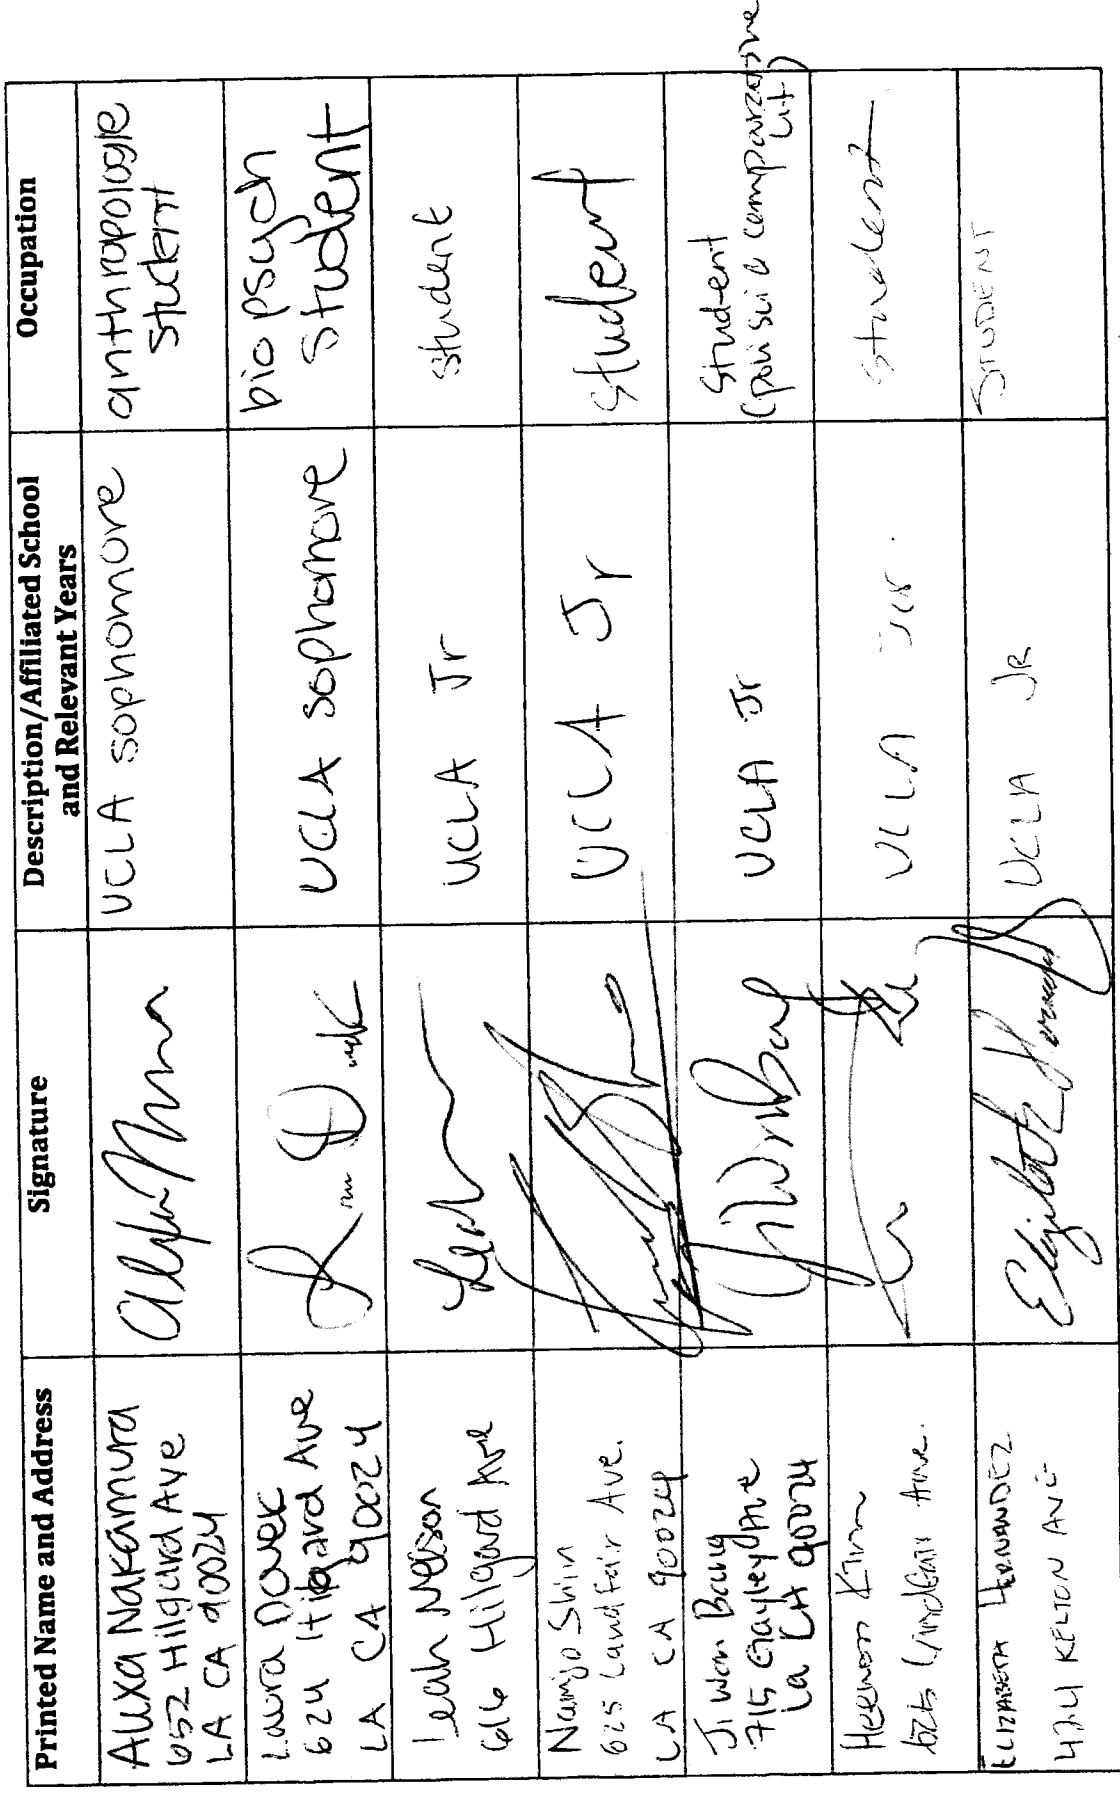 Printed Name and Address
Signature
Description/Affiliated School
and Relevant Years
Occupation
Alixa Nakamura
652 Hilgard Ave
LA CA 90024
UCLA sophomore
anthropologie
student
Laura Davek
624 Hilgard Ave
LA CA 90024
UCLA sophomore
bio psych
student
Leah Nelson
616 Hilgard Ave
Leah
UCLA Jr
student
Namjo Shin
625 Landfair Ave.
LA CA 90024
UCLA Jr
student
Ji Won Bang
715 Gayley Ave
La CA 90024
JiWon Bang
UCLA Jr
Student
comparative
Lit)
Heewon Kim
625 Landfair Ave.
UCLA Jr.
student
ELIZABETH HERNANDEZ
424 KELTON AVE
Elizabeth Hernandez
UCLA JR
STUDENT